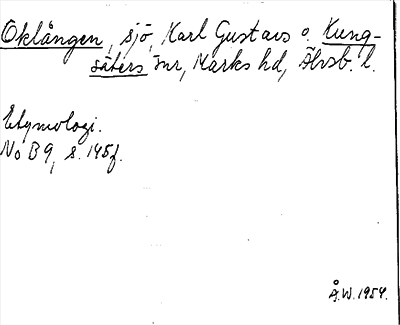 Oklången, sjö, Karl Gustavs o. Kung-
säters snr, Marks hd, Älvsb. l.
Etymologi.
NoB 9, s. 145f.
Å.W. 1954.